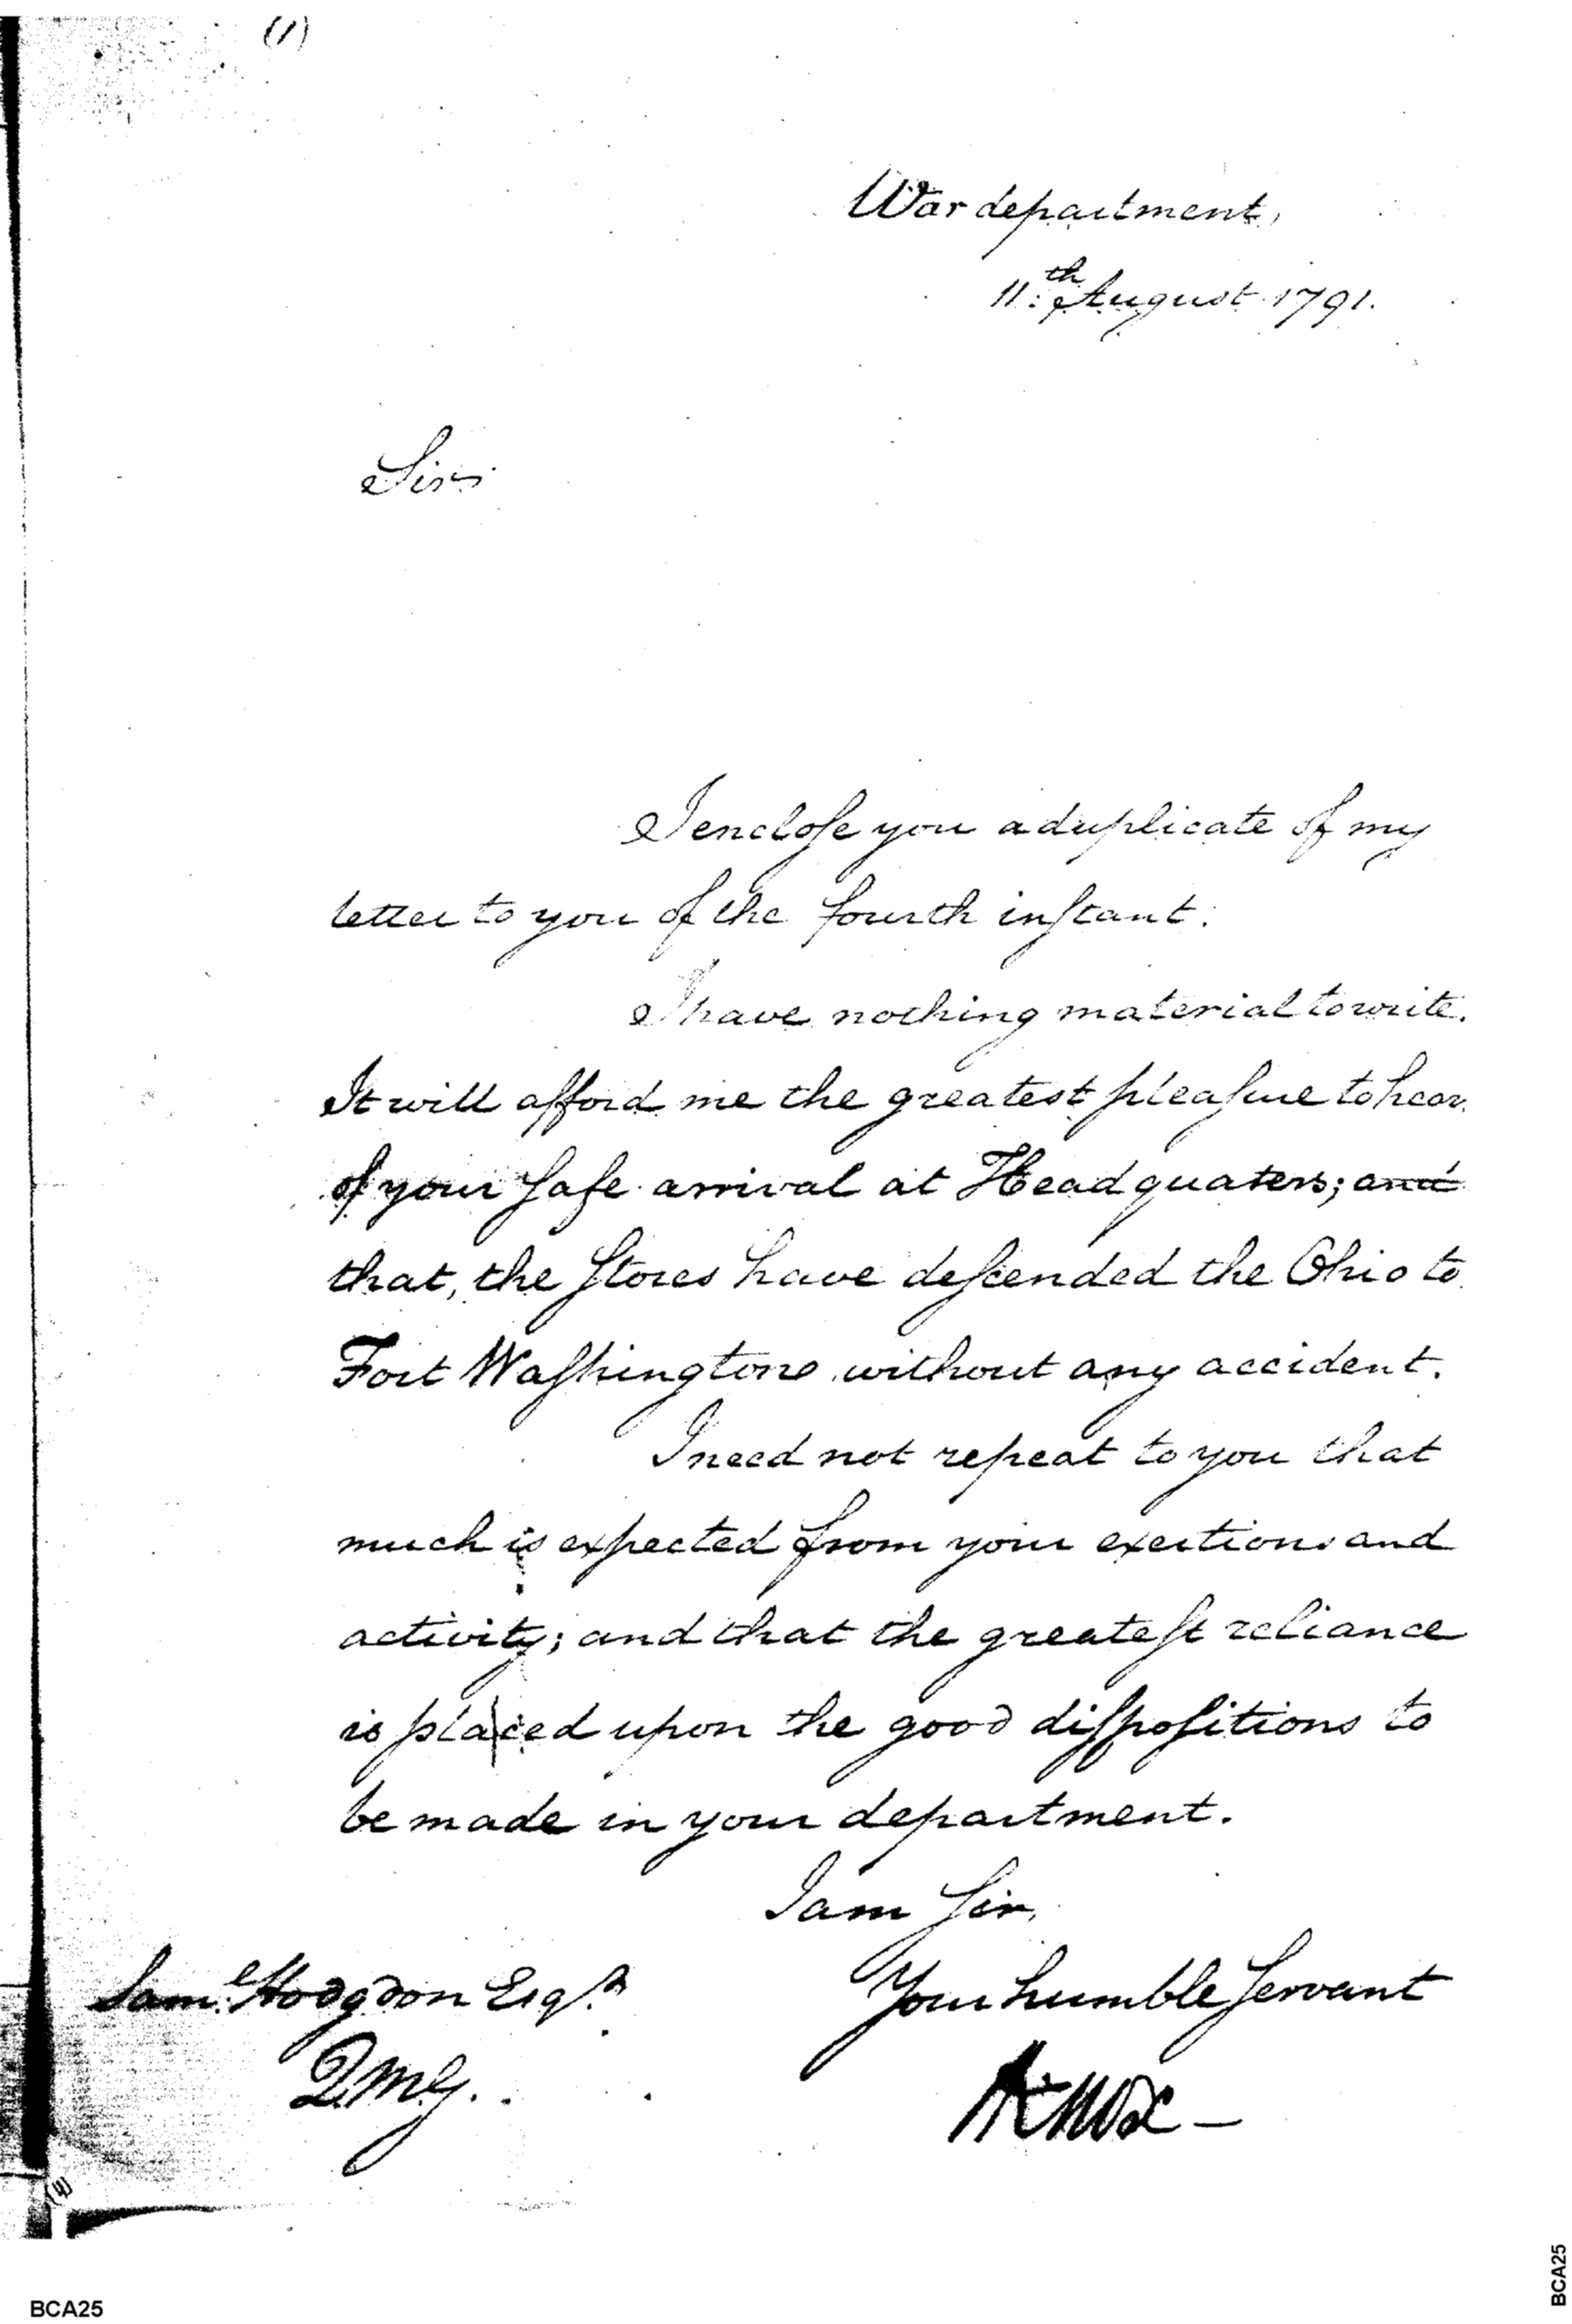 (1)
War department,
11th August 1791.
Sir
I enclose you a duplicate of my
letter to you of the fourth instant.
I have nothing material to write.
It will afford me the greatest pleasure to hear
of your safe arrival at Head quaters; and
that, the stores have descended the Ohio to
Fort Washington without any accident.
I need not repeat to you that
much is expected from your exertions and
activity; and that the greatest reliance
is placed upon the good dispositions to
be made in your department.
I am Sir,
Your humble servant
Saml. Hodgdon Esqr.
QMG.
HKnox
(4)
BCA25
BCA25